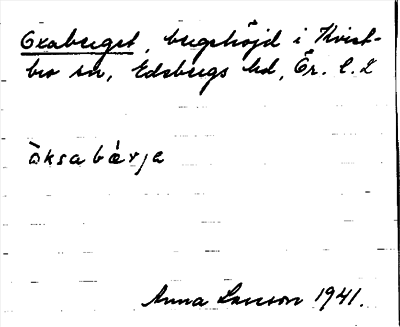 Oxaberget, bergshöjd i Kvist-
bro sn, Edsbergs hd, Ör. l.
òksabárja
Anna Larsson 1941.